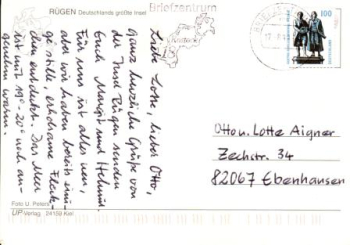 RÜGEN Deutschlands größte Insel
Briefzentrum
100
Liebe Lotte, lieber Otto,
ganz herzliche Grüße von
der Insel Rügen senden
Euch Margit und Helmut
Für uns ist alles neu,
aber wir haben bereits eini-
ge stille, erholsame Fleck-
chen entdeckt. Das Meer
ist mit 19°-20° noch an-
genehm warm.
Otto u. Lotte Aigner
Zechstr. 34
82067 Ebenhausen
Foto U. Peters
UP Verlag 24159 Kiel